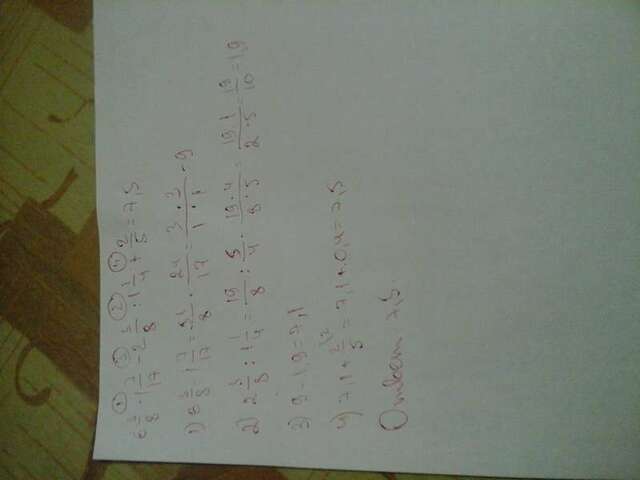 ① ③ ② ④
6 3/8 · 1 7/17 - 2 3/8 : 1 1/4 + 2/5 = 7,5
1) 6 3/8 · 1 7/17 = 51/8 · 24/17 = 3·3/1·1 = 9
2) 2 3/8 : 1 1/4 = 19/8 : 5/4 = 19·4/8·5 = 19·1/2·5 = 19/10 = 1,9
3) 9 - 1,9 = 7,1
4) 7,1 + 2/5 = 7,1 + 0,4 = 7,5
Ответ 7,5.